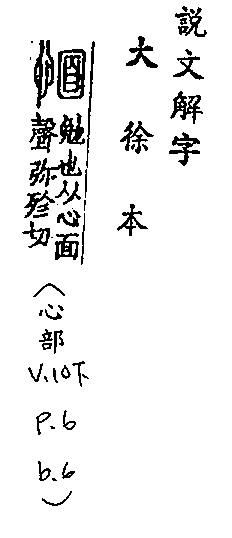 説文解字
大徐本
愐 勉也从心面
聲弥殄切
(心部V.10下P.6b.6)